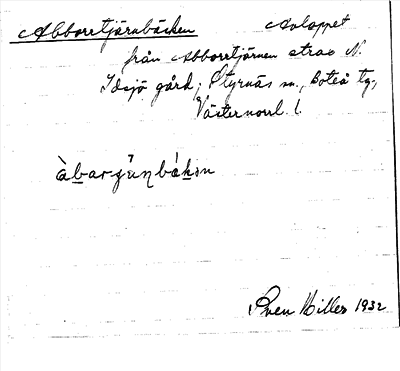 Abborrtjärnbäcken Avloppet
från Abborrtjärnen strax N.
Idsjö gård; Styrnäs sn, Boteå tg,
Västernorrl. l.
Sven Hiller 1932